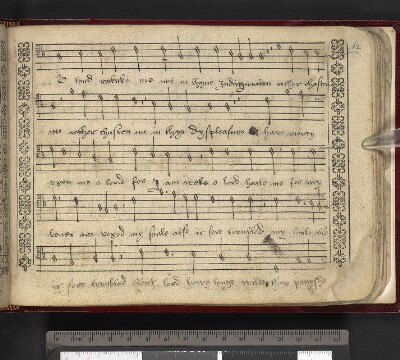 O lord rebuke me not in thyne Indignacion nether chasten
me nether chasten me in thye dyspleasure have mercy
upon me o lord for I am weke o lord heale me for my
bones are vexed my soule also is sore trowbled my soule also
is sore trowbled but lord howe longe wilt thou